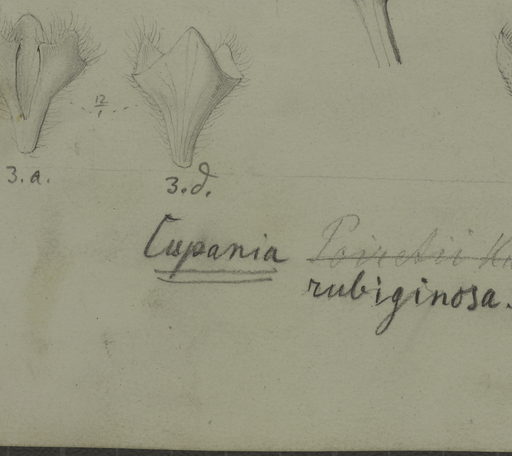 12
1
3.a.
3.d.
Cupania Poiretii
rubiginosa.